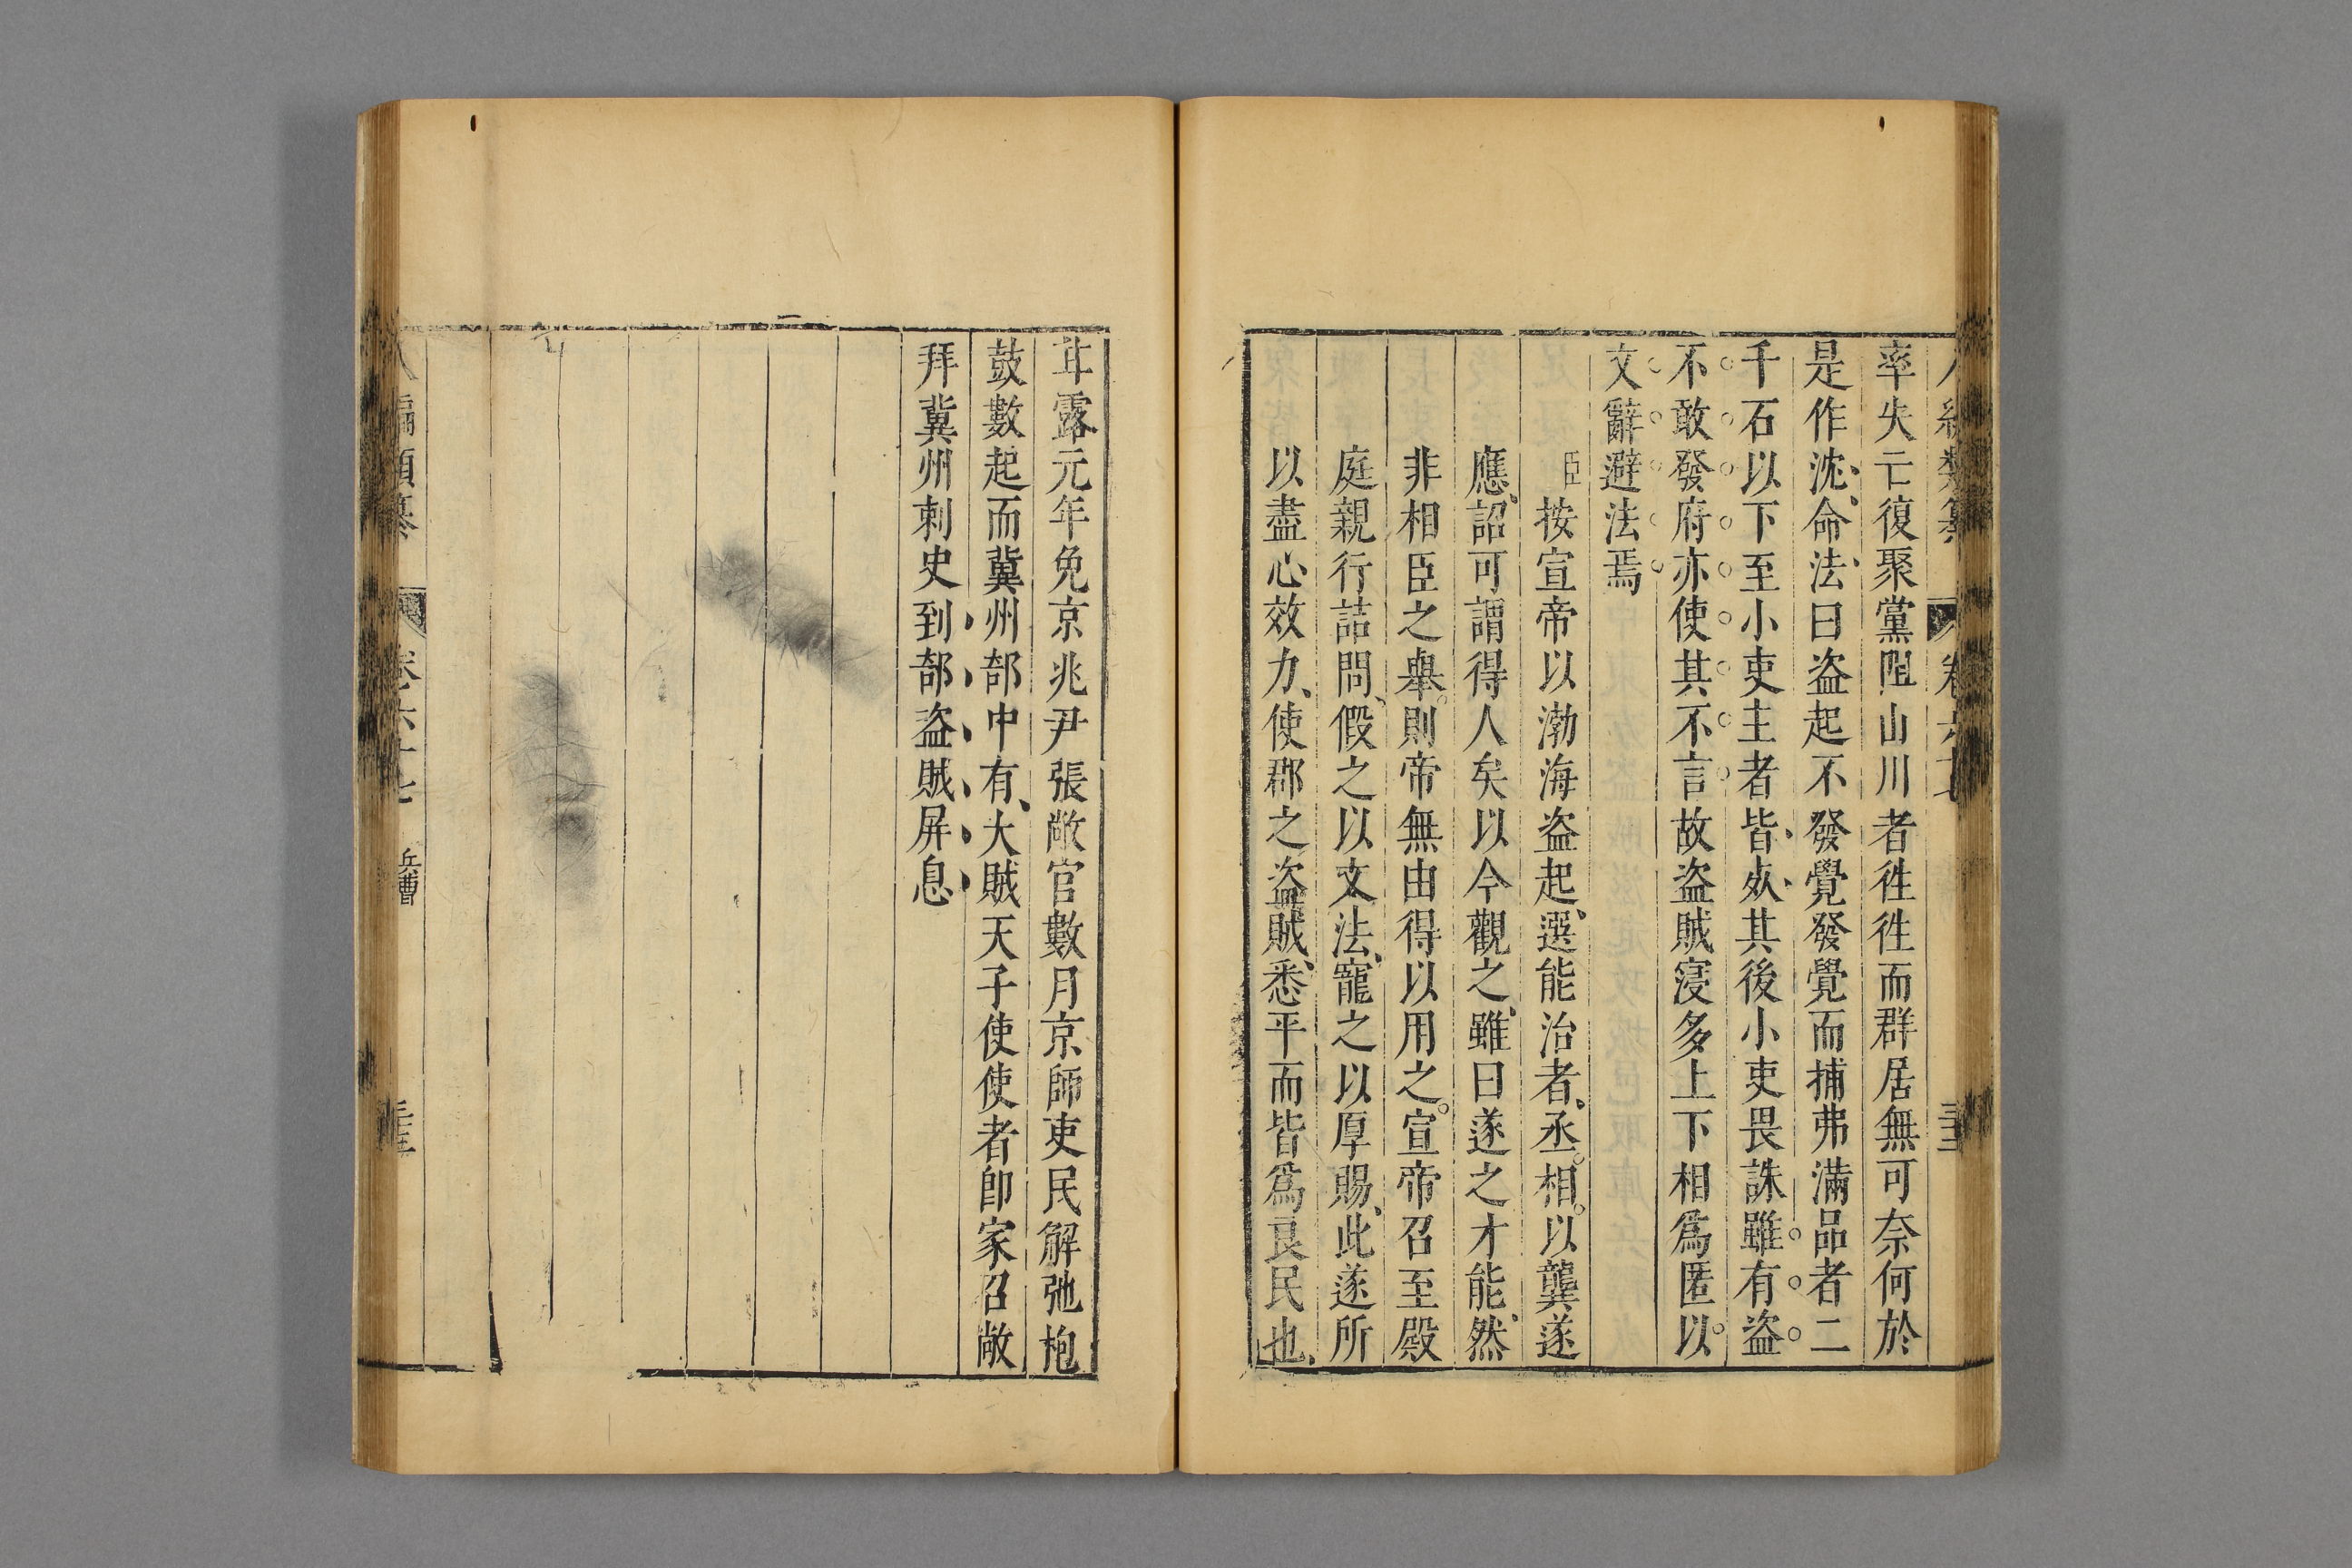 率失亡復聚黨阻山川者徃徃而群居無可奈何於
是作沈命法曰盜起不發覺發覺而捕弗滿品者二
千石以下至小吏主者皆䊹其後小吏畏誅雖有盜
不敢發府亦使其不言故盜賊寖多上下相爲匿以
文辭避法焉
臣按宣帝以渤海盜起選能治者丞相以龔遂
應詔可謂得人矣以今觀之雖曰遂之才能然
非相臣之舉則帝無由得以用之宣帝召至殿
庭親行詰問假之以文法寵之以厚賜此遂所
以盡心效力使郡之盜賊悉平而皆爲良民也
耳露元年免京兆尹張敞官數月京師吏民解弛枹
鼓數起而冀州部中有大賊天子使使者卽家召敞
拜冀州刺史到部盜賊屏息
編類纂 卷六十七 兵曹